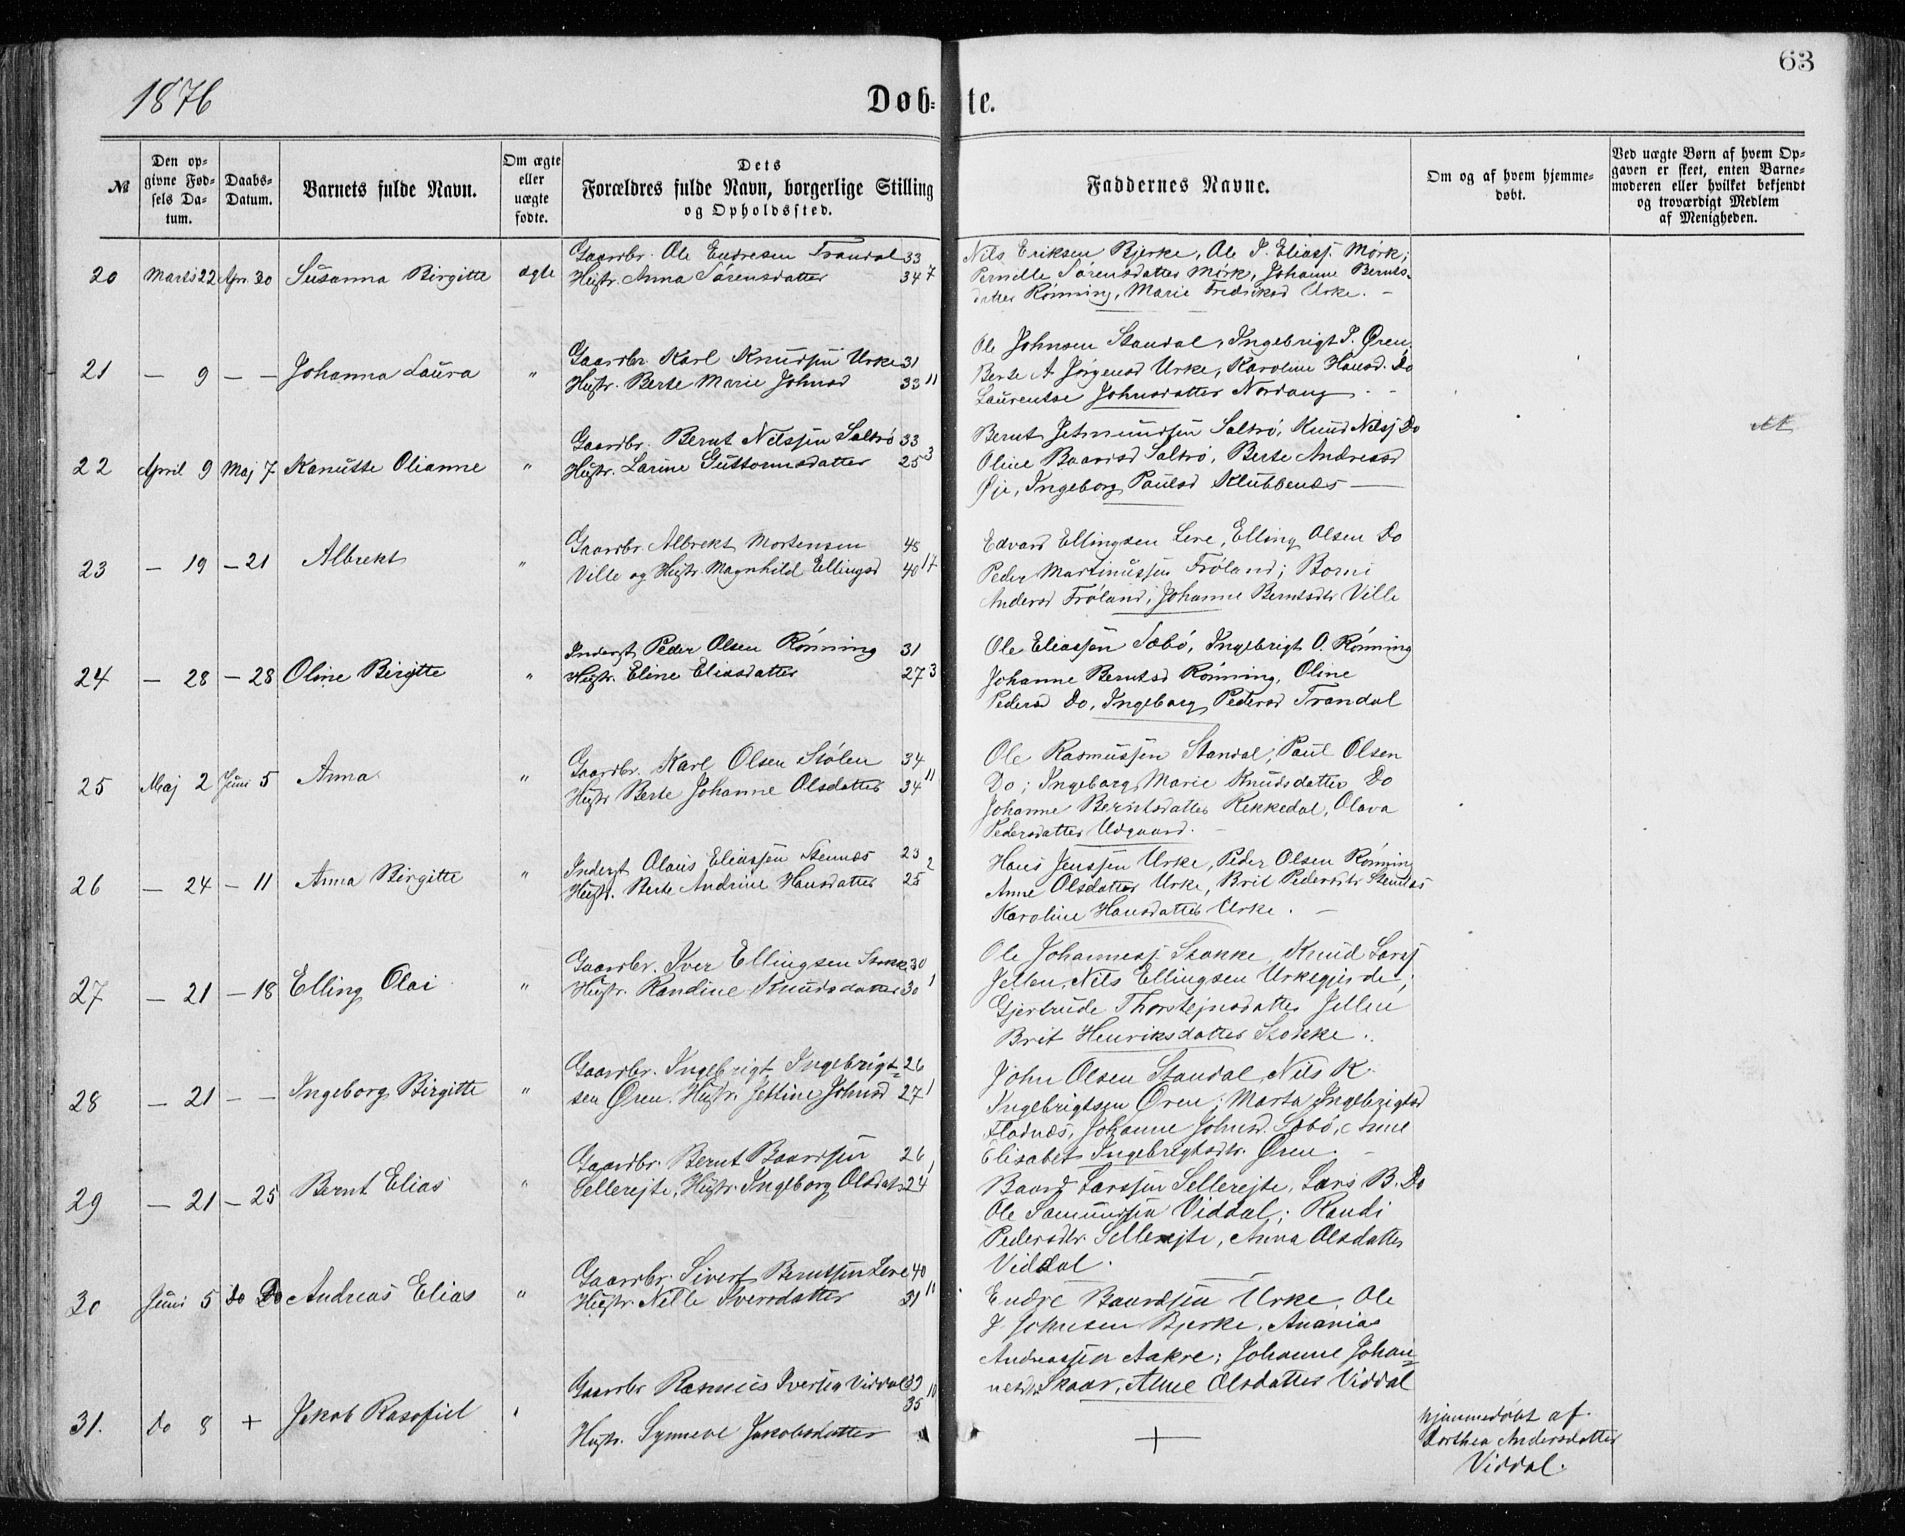 63
1876
Døb- te.
№
Den op-
givne Fød-
sels Da-
tum.
Daabs-
Datum.
Barnets fulde Navn.
Om ægte
eller
uægte
fødte.
Dets
Forældres fulde Navn, borgerlige Stilling
og Opholdssted.
Faddernes Navne.
Om og af hvem hjemme-
døbt.
Ved uægte Børn af hvem Op-
gaven er skeet, enten Barne-
moderen eller hvilket bekjendt
og troværdigt Medlem
af Menigheden.
20 Marts 22 Apr. 30 Susanna Birgitte ægte
Gaardbr. Ole Endresen Trandal 33
Hustr. Anna Sørensdatter 34 7
Nils Eriksen Bjerke, Ole P. Eliass. Mørk;
Pernille Sørensdatter Mørk, Johanne Bernts-
datter Rönning, Marie Fredriksd Urke. -
21 - 9 - - Johanna Laura "
Gaardbr. Karl Knudsen Urke 31
Hustr. Berte Marie Johnsd 33 11
Ole Johnsen Standal, Ingebrigt P. Øren,
Berte A Jørgensd Urke, Karoline Hansd. Do
Laurentse Johnsdatter Nordang -
22 April 9 Maj 7 Kanutte Olianne "
Gaardbr. Bernt Nilssen Saltrö 33
Hustr. Larine Guttormsdatter 25 3
Bernt Jetmundsen Saltrö, Knud Nilsj Do
Oline Baardsd Saltrö, Berte Andreasd
Øje, Ingeborg Paulsd Klubbenæs -
23 - 19 - 21 Albrekt "
Gaardbr. Albrekt Mortensen 45
Ville og Hustr. Magnhild Ellingsd 40 17
Edvard Ellingsen Leve, Elling Olsen Do
Peder Martinussen Frøland; Borni
Andersd Frøland, Johanne Berntsdtr Ville
24 - 28 - 28 Oline Birgitte "
Inderst Peder Olsen Rönning 31
Hustr. Eline Eliasdatter 27 3
Ole Eliassen Sæbö, Ingebrigt O. Rönning
Johanne Berntsd Rönning, Oline
Pedersd Do, Ingeborg Pedersd Trandal
25 Maj 2 Juni 5 Anna "
Gaardbr. Karl Olsen Stölen 34
Hustr Berte Johanne Olsdatter 34 11
Ole Rasmussen Standal, Paul Olsen
Do; Ingeborg Marie Knudsdatter Do
Johanne Berntsdatter Rekkedal, Olava
Pedersdatter Udgaard. -
26 - 24 - 11 Anna Birgitte "
Inderst Olaus Eliassen Stennæs 23
Hustr. Berte Andrine Hansdatter 25 2
Hans Jenssen Urke, Peder Olsen Rönning
Anne Olsdatter Urke, Brit Pedersdtr Stennæs
Karoline Hansdatter Urke. -
27 - 21 - 18 Elling Olai "
Gaardbr. Iver Ellingsen Stokke 30
Hustr. Randine Knudsdatter 30 1
Ole Johannesj Stokke, Knud Larsj
Jellen, Nils Ellingsen Urkegjerde;
Gjertrude Thorstejnsdatter Jellen
Brit Henriksdatter Stokke.
28 - 21 - - Ingeborg Birgitte "
Gaardbr. Ingebrigt Ingebrigt- 26
sen Øren. Hustr. Jettine Johnsd 27 1
John Olsen Standal, Nils K.
Ingebrigtsen Øren; Marta Ingebrigtsd
Fladnæs, Johanne Johnsd. Sæbö, Anne
Elisabet Ingebrigtsdtr. Øren. -
29 - 21 - 25 Bernt Elias "
Gaardbr. Bernt Baardsen 26
Sellerejte, Hustr. Ingeborg Olsdatr 24 1
Baard Larssen Sellerejte, Lars B. Do
Ole Samundsen Viddal; Randi
Pedersdtr. Sellerejte, Anna Olsdatter
Viddal.
30 Juni 5 Do Do Andreas Elias "
Gaardbr. Sivert Berntsen Leve 40
Hustr. Nille Iversdatter 31 11
Endre Baardsen Urke, Ole
J. Johnsen Bjerke, Ananias
Andreassen Aakre; Johanne Johan-
nesdtr Skaar, Anne Olsdatter Viddal
31. Do 8 + Jakob Rasofiel "
Gaardbr Rasmus Iversen Viddal 39 10
35
Hustr. Synneve Jakobsdatter
+
hjemmedøbt af
Dorthea Andersdatter
Viddal.